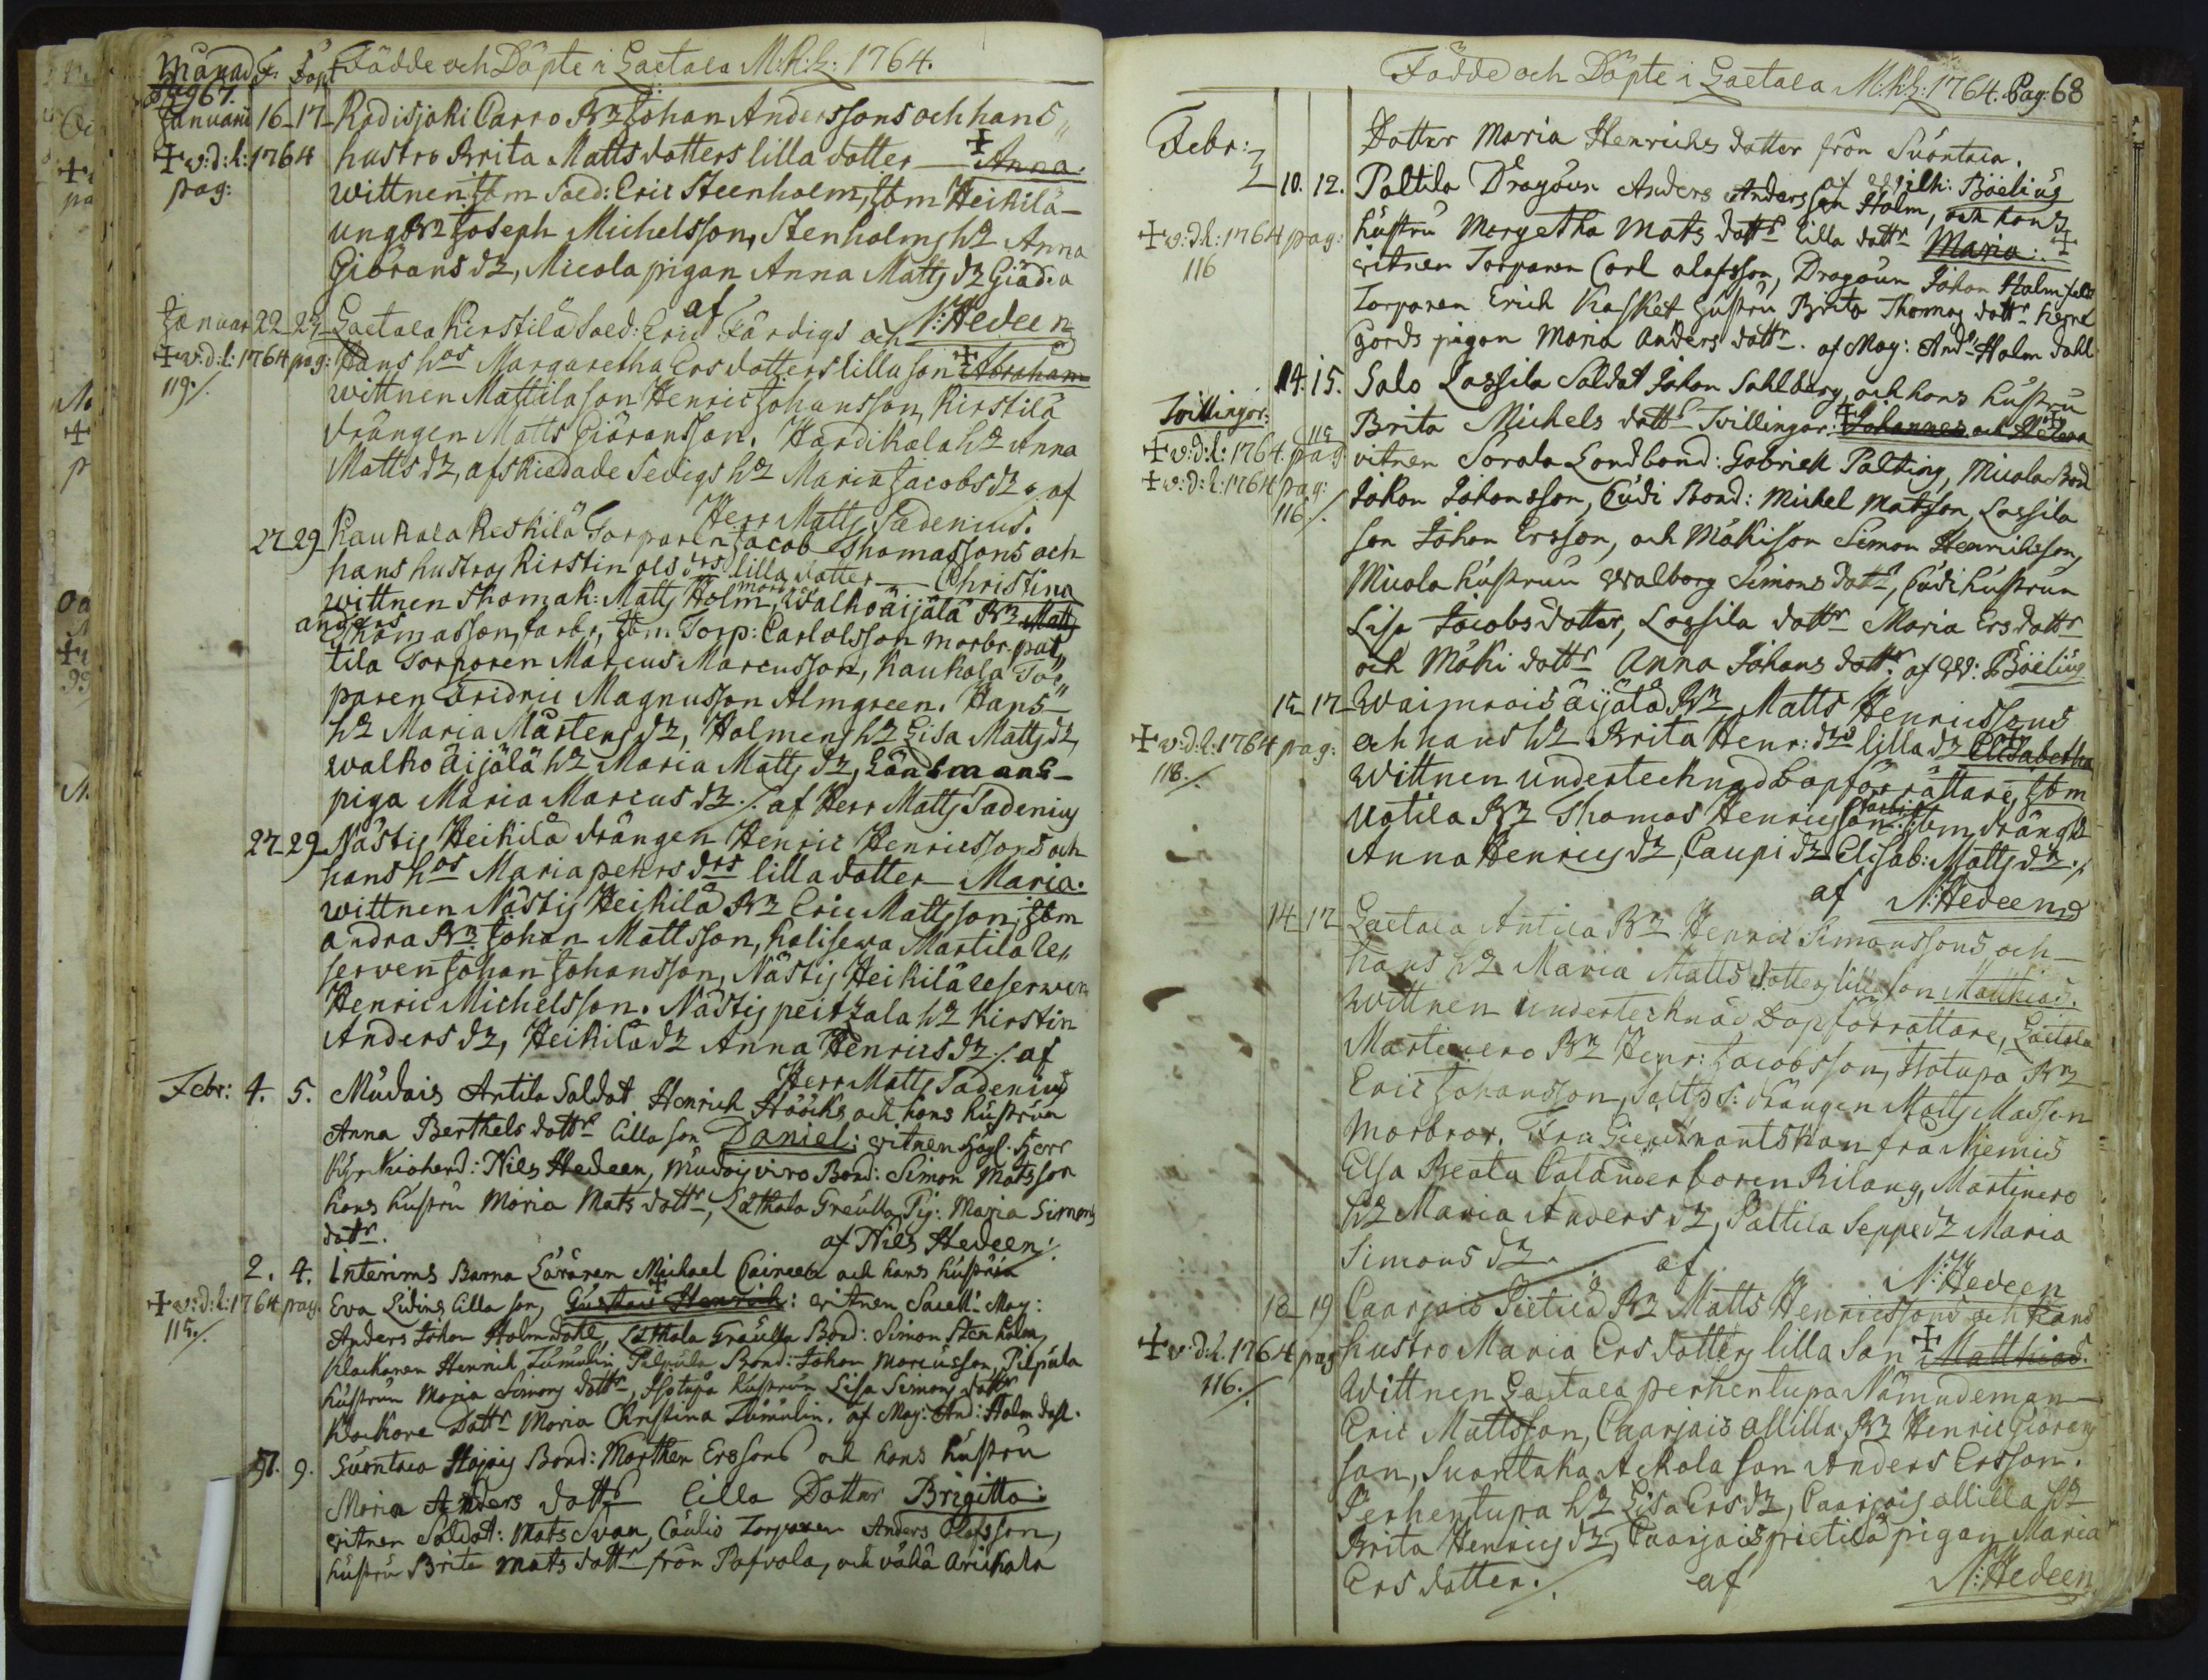 Månad F. Döpt Födde och Döpte i Laetala M:R:K: 1764.
Pag 67.
Januarii 16-17- Kodisjoki Carro Bz Johan Anderssons och hans
✝ v:d:l: 1764 hustro Brita Matts dotters lilla dotter — ✝ Anna.
pag: wittnen Ibm Sold: Eric Steenholm, Ibm Heikilä-
unge Bz Joseph Michelsson, Stenholms hz Anna
Giörans dz, Micola pigan Anna Matts dz
af N: Hedeen
Januar 22-23 Laetala Kirstilä Sold: Eric Färdigs och
✝ v:d:l: 1764 pag: hans hos Margaretha Ers dotters lilla son ✝ Abraham
119./. wittnen Mattila son Henric Johansson, Kirstilä
drängen Matts Giöransson. Hardikala hz Anna
Matts dz, afskiedade Sevigs hz Maria Jacobs dz ./. af
Herr Matts Sadenius.
27-29 Kaukola Keskilä Torparen Jacob Thomassons och
hans hustros Kirstin Ols drs lilla dotter — Christina
wittnen Thomak: Matts Holm, Walko äijälä Bz Matts
anders
Thomasson, farbr, Ibm Torp: Carl olsson morbr. pal
tila Torparen Marcus Marcusson, Kaukola Tor
paren Fridric Magnusson Almgreen. Hans-
hz Maria Mårtens dz, Holmens hz Lisa Matts dz,
Walko äijälä hz Maria Matts dz, Länsmans-
piga Maria Marcus dz ./. af Herr Matts Sadenius
27-29 Nästis Heikilä drängen Henric Henricssons och
hans hos Maria peters drs lilla dotter — Maria.
wittnen Nästis Heikilä Bz Eric Mattsson, Ibm
andra Bz Johan Mattsson, Kalisewa Martila re
serven Johan Johansson, Nästis Heikilä reserwen
Henric Michelsson. Nästis peitzala hz Kirstin
Anders dz, Heikilä dz Anna Henrics dz ./. af
Herr Matts Sadenius
Febr: 4. 5. Mudais Antila Soldat Henrich Hööcks och hans hustrus
Anna Berthels dottr lilla son Daniel: witnen Högl. Herr
Kyrkioherd: Nils Hedeen, Mudois viro Bond: Simon Matsson
hans hustru Maria Mats dottr, Lathala Greulla Pig: Maria Simons
dottr. af Nils Hedeen ./.
2. 4. Interims Barna Läraren Michael Caireen och hans hustrus
✝ v:d:l: 1764 pag. Eva Lidins lilla son, ✝ Gustavus Henrich: witnen Sacell: Mag:
115./. Anders Johan Holmdahl, Lathala Greulla Bond: Simon Stenholm,
Klockaren Henrich Tumulin, Pilpula Bond: Johan Marcusson, Pilpula
hustrun Maria Simons dottr, Isotupa hustrun Lisa Simons dottr
Klockare Dottr Maria Christina Tumulin. af Mag: And: Holmdahl.
9. Suontaca Hajois Bond: Morthen Erssons och hans hustru
Maria Anders dottr lilla Dotter Brigitta:
witnen Soldat: Mats Svan, Caulis Torparen Anders Olofsson,
hustru Brita Mats dottr från Pafvola, och vähä Arickala
Födde och Döpte i Laetala M:R:K: 1764. Pag: 68
Febr: Dotter Maria Henrichs dotter från Suontaca.
af Wilh: Böelius
10. 12. Paltila Dragoun Anders Andersson Holm, och hans
✝ v:d:l: 1764 pag: hustru Margetha Mats dottr lilla dottr Maria: ✝
116 witnen Torparen Carl Olofsson, Dragoun Johan Holmfelt
Torparen Erich Kasket hustru Brita Thomas dottr
gårds pigan Maria Anders dottr. af Mag: And: Holmdahl
14. 15. Salo Lassila Soldat Johan Sahlberg, och hans hustru
Tvillingar: Brita Michels dottr Tvillingar: ✝ Johannes och Helena ✝
✝ v:d:l: 1764 pag 115 vitnen Sorola Landbond: Gabriell Palting, Micola Bond
✝ v:d:l: 1764 pag: Johan Johansson, Cudi Bond: Michel Matsson, Lassila
116/. son Johan Ersson, och Mäkison Simon Henricksson,
Micola hustrun Walborg Simons dottr, Cudi hustrun
Lisa Jacobs dotter, Lassila dottr Maria Ers dottr
och Mäki dottr Anna Johans dottr: af W: Böelius
15-17- Waimrois äijälä Bz Matts Henricssons
✝ v:d:l: 1764 pag: och hans hz Brita Henr: dzs lilla dz ✝ Elisabetha
118./. Wittnen undertecknad Dopförrättare, Ibm
Uotila Bz Thomas Henricsson farbr. Ibm drängs
Anna Henrics dz, Caupi dz Elisab: Matts dz ./.
af N: Hedeen
14-17 Laetala Antila Bz Henric Simonssons och-
hans hz Maria Matts dotters lilla son Matthias.
Wittnen undertecknad Dopförrättare, Laetala
Martinero Bz Henr: Jacobsson, Isotupa Bz
Eric Johansson, Drängen Matts Masson
Morbror. Fru Lieutnantskan fra Niemis
Elsa Beata Calander boren Rilang, Martinero
hz Maria Anders dz, Pattila Seppe dz Maria
Simons dz. af N: Hedeen
18-19 Caarjais Pietilä Bz Matts Henricssons och hans
✝ v:d:l: 1764 pag hustro Maria Ers dotters lilla son ✝ Matthias.
116./. Wittnen Laetala perhentupa Nämndeman-
Eric Mattsson, Caarjais allilla Bz Henric Giörans
son, Suontaka Ackala son Anders Ersson.
Perhentupa hz Lisa Ers dz, Caarjais allilla hz
Brita Henrics dz, Caarjais pietilä pigan Maria
Ers dotter ./. af N: Hedeen